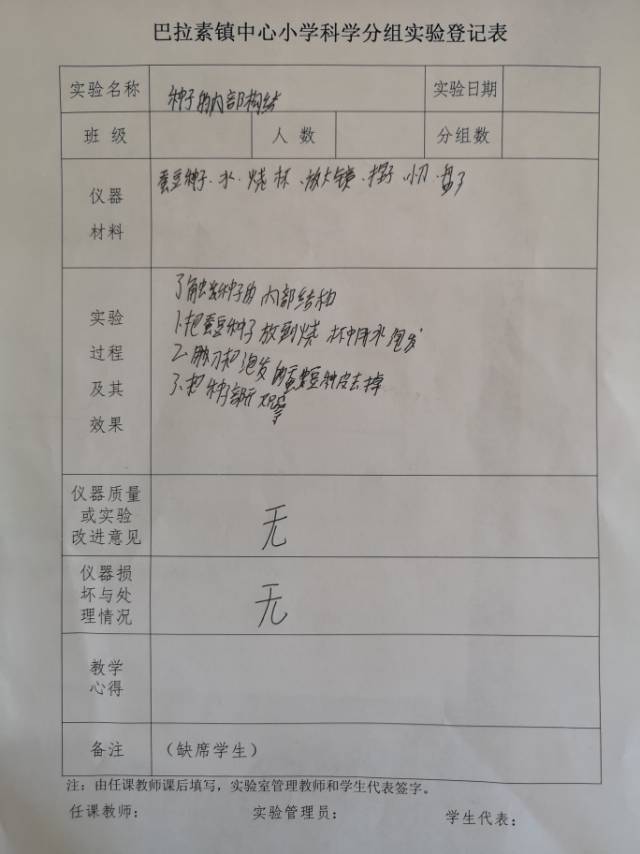 巴拉素镇中心小学科学分组实验登记表
实验名称 种子的内部构结 实验日期
班 级 人 数 分组数
仪器 蚕豆种子、水、烧杯、放大镜、镊子、小刀、盘子
材料
了解蚕豆种子的内部结构
实验 1.把蚕豆种子放到烧杯中用水泡发
过程 2.用刀把泡发的蚕豆种皮去掉
及其 3.把种子掰开观察
效果
仪器质量
或实验 无
改进意见
仪器损
坏与处 无
理情况
教学
心得
备注 （缺席学生）
注：由任课教师课后填写，实验室管理教师和学生代表签字。
任课教师： 实验管理员： 学生代表：